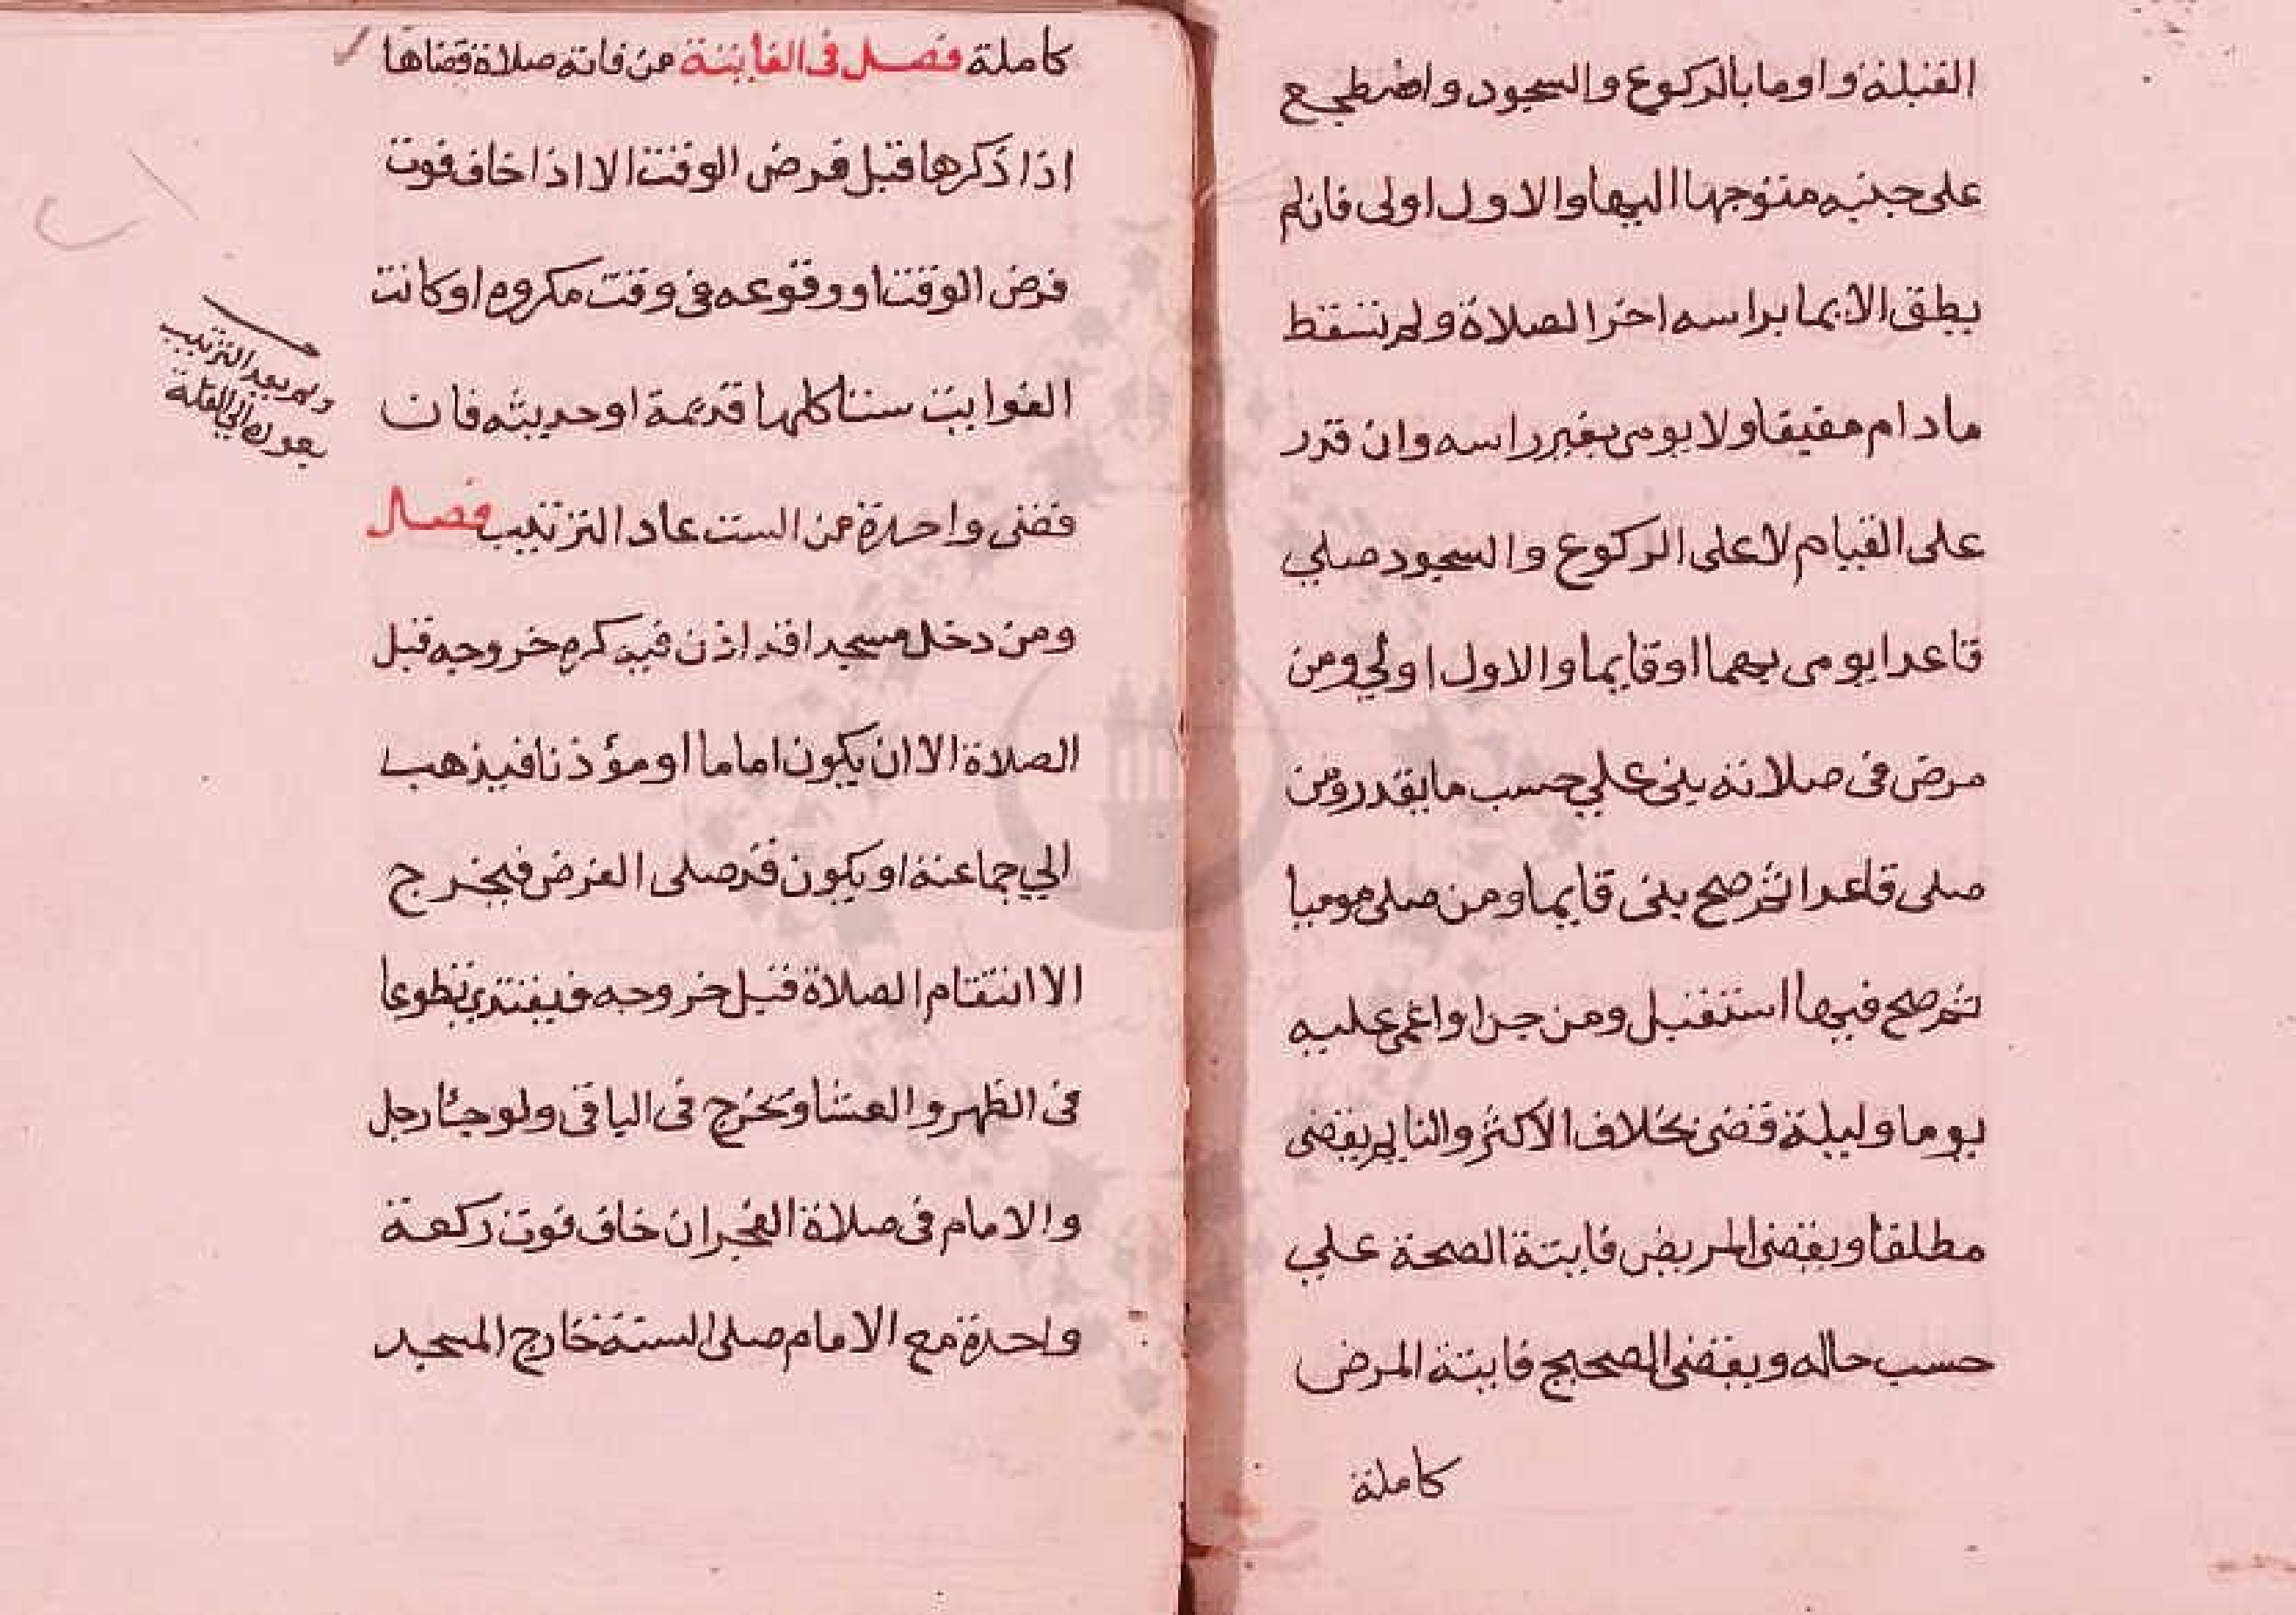 القبلة واوما بالركوع والسجود واضطجع
على جنبه متوجها اليها والاول اولى فان لم
يطق الايما براسه اخر الصلاة ولم تسقط
مادام مفيقا ولا يومى بغير راسه وان قدر
على القيام لا على الركوع والسجود صلي
قاعدا يومى بهما او قايما والاول اولي ومن
مرض فى صلاته بنى علي حسب ما يقدر ومن
صلى قاعدا ثم صح بنى قايما ومن صلى موميا
ثم صح فيها استقبل ومن جن او اغمى عليه
يوما وليلة قضى بخلاف الاكثر والنايم يقضى
مطلقا ويقضى المريض فايتة الصحة علي
حسب حاله ويقضى الصحيح فايتة المرض
كاملة
كاملة فصل فى الفايتة من فاته صلاة قضاها
اذا ذكرها قبل فرض الوقت الا اذا خاف فوت
فرض الوقت او وقوعه فى وقت مكروه او كانت
الفوايت ستا كلها قديمة او حديثه فان
قضى واحدة من الست عاد الترتيب فصل
ومن دخل مسجدا قد اذن فيه كره خروجه قبل
الصلاة الا ان يكون اماما او مؤذنا فيذهب
الي جماعته او يكون قد صلى الفرض فيخرج
الا ان تقام الصلاة قبل خروجه فيقتدى تطوعا
فى الظهر والعشا ويخرج فى الباقى ولو جئا رجل
والامام فى صلاة الفجر ان خاف فوت ركعة
واحدة مع الامام صلى السنة خارج المسجد
ولم يعد الترتيب
بعوده الى القلة